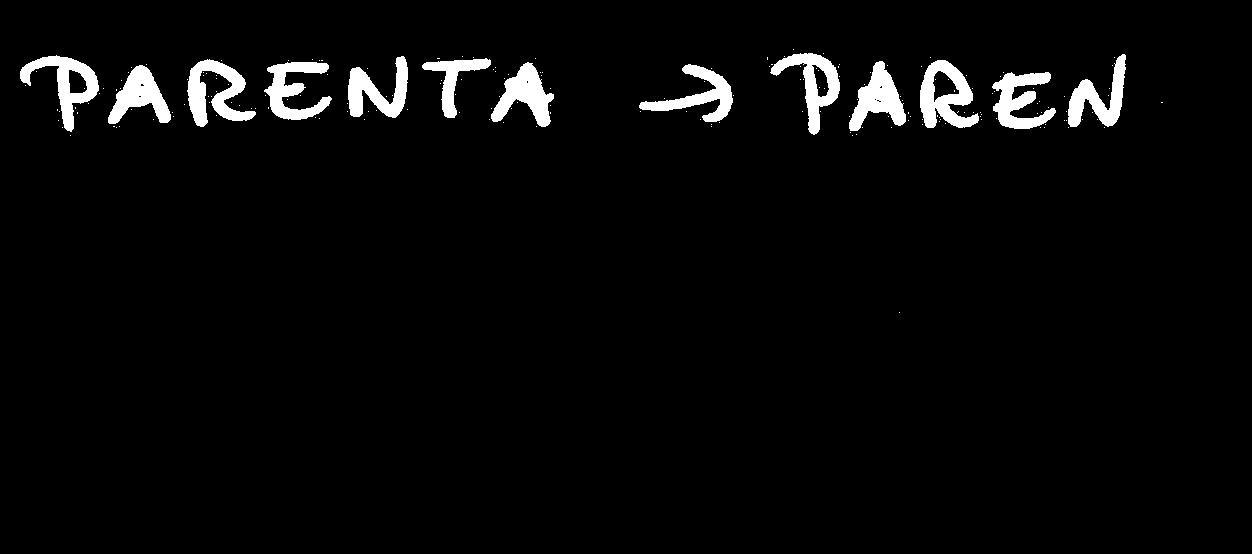 PARENTA → PAREN